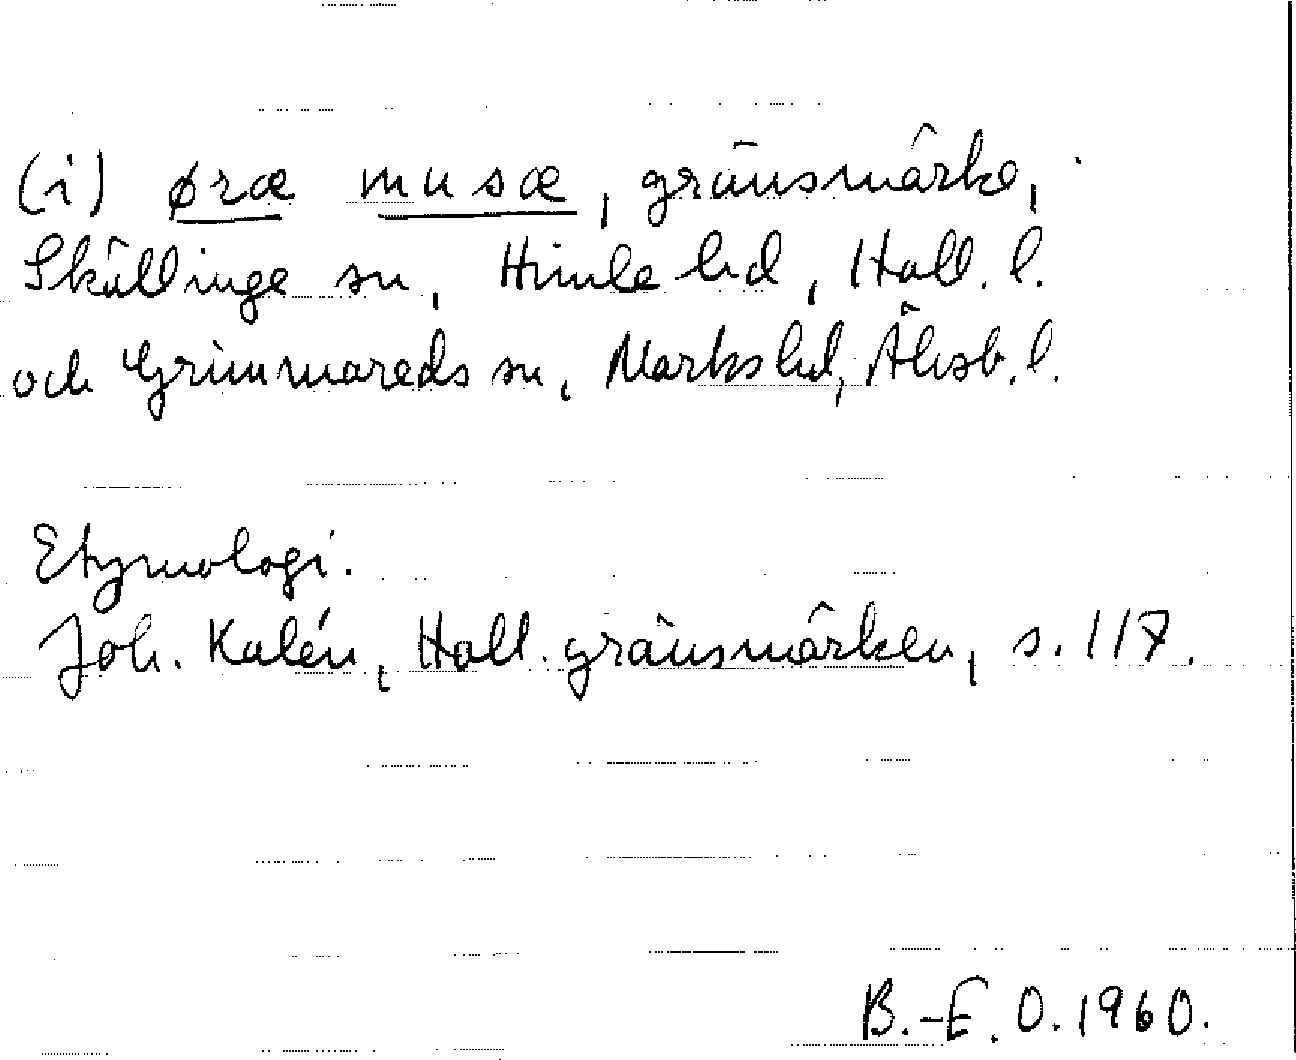 (i) øræ musæ, gränsmärke,
Skällinge sn, Himle hd, Hall. l.
och Grimmareds sn, Marks hd, Älvsb. l.
Etymologi.
Joh. Kalén, Hall. gränsmärken, s. 117.
B.-E. O. 1960.